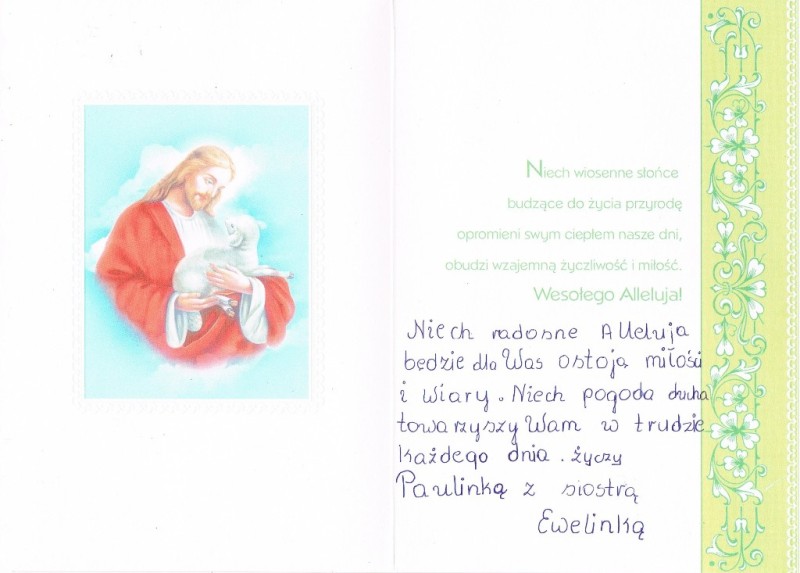 Niech wiosenne słońce
budzące do życia przyrodę
opromieni swym ciepłem nasze dni,
obudzi wzajemną życzliwość i miłość.
Wesołego Alleluja!
Niech radosne Alleluja
będzie dla Was ostoją miłości
i wiary. Niech pogoda ducha
towarzyszy Wam w trudzie
każdego dnia. życzy
Paulinką z siostrą
Ewelinką